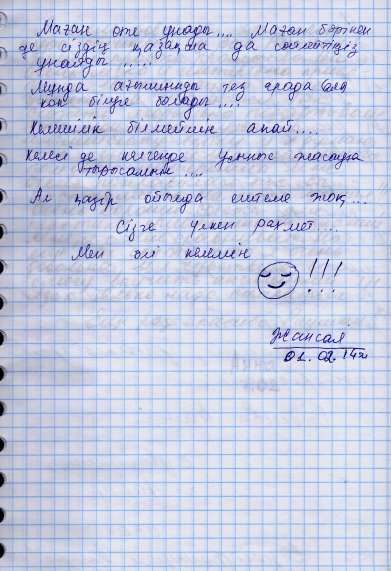 Маған өте ұнады.... Маған бәрінен
де сіздің қазақша да сөйлейтіңіз
ұнайды .....
Мұнда ағылшынды тез арада
көп білуге болады....
білмеймін апай....
Келесі де келгенде жасауға
тырысамын ....
Ал қазір ойымда ештеме жоқ...
Сізге үлкен рахмет....
Мен әлі келемін
!!!
Жансая
01.02.14ж